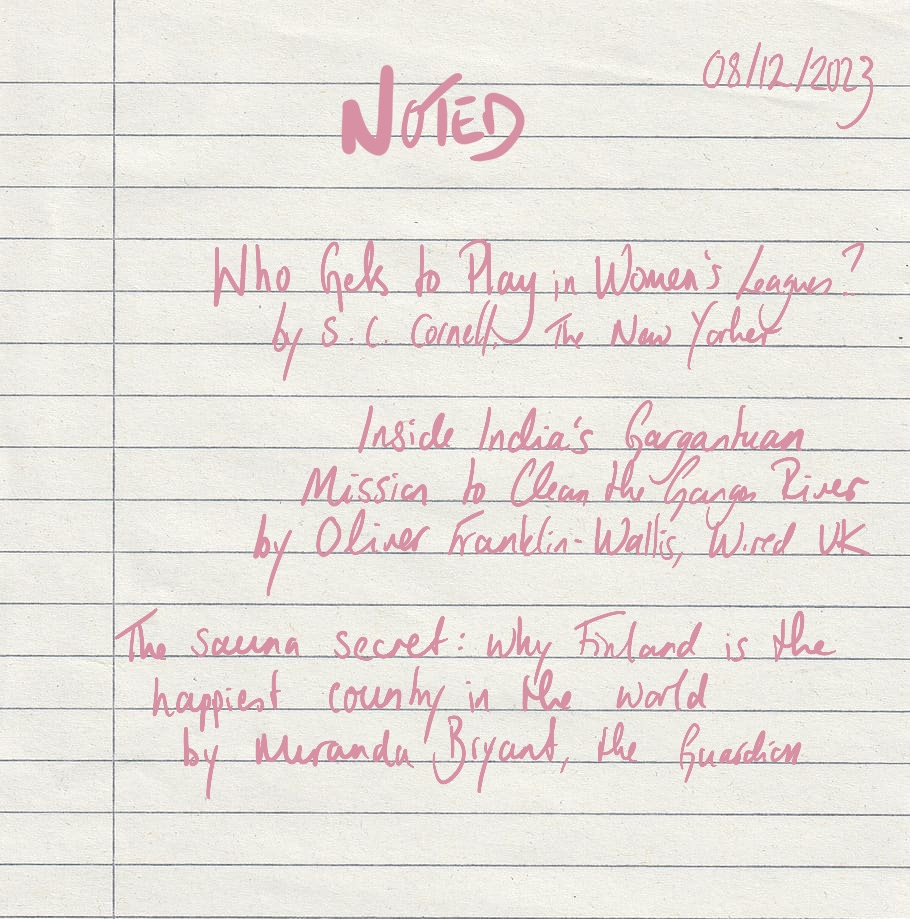 08/12/2023
NOTED
Who Gets to Play in Women's Leagues?
by S. C. Cornell, The New Yorker
Inside India's Gargantuan
Mission to Clean the Ganges River
by Oliver Franklin-Wallis, Wired UK
The sauna secret: why Finland is the
happiest country in the world
by Miranda Bryant, the Guardian